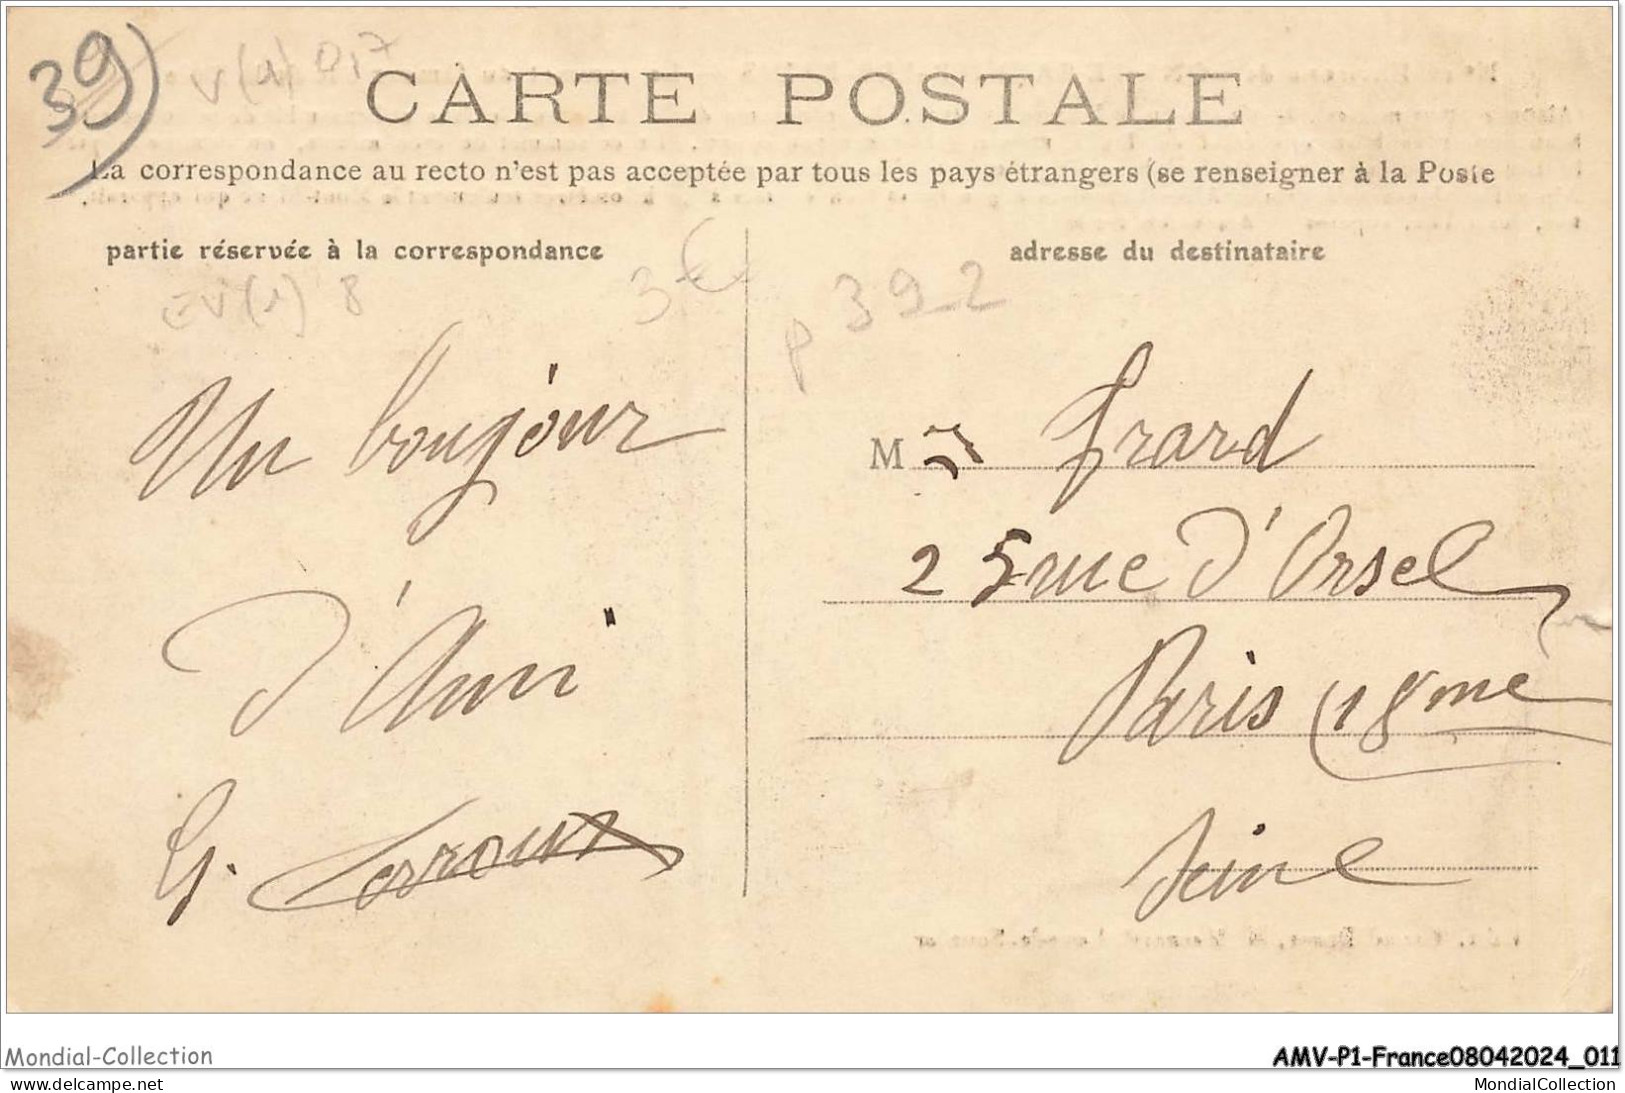 39)
CARTE POSTALE
La correspondance au recto n'est pas acceptée par tous les pays étrangers (se renseigner à la Poste
partie réservée à la correspondance
adresse du destinataire
3€
p 392
Un bonjour
d'Ami
G. Lerroux
M Frard
25 rue d'Orsel
Paris (18me
Seine
Mondial-Collection
AMV-P1-France08042024_011
Mes ventes sur delcampe.net
MondialCollection